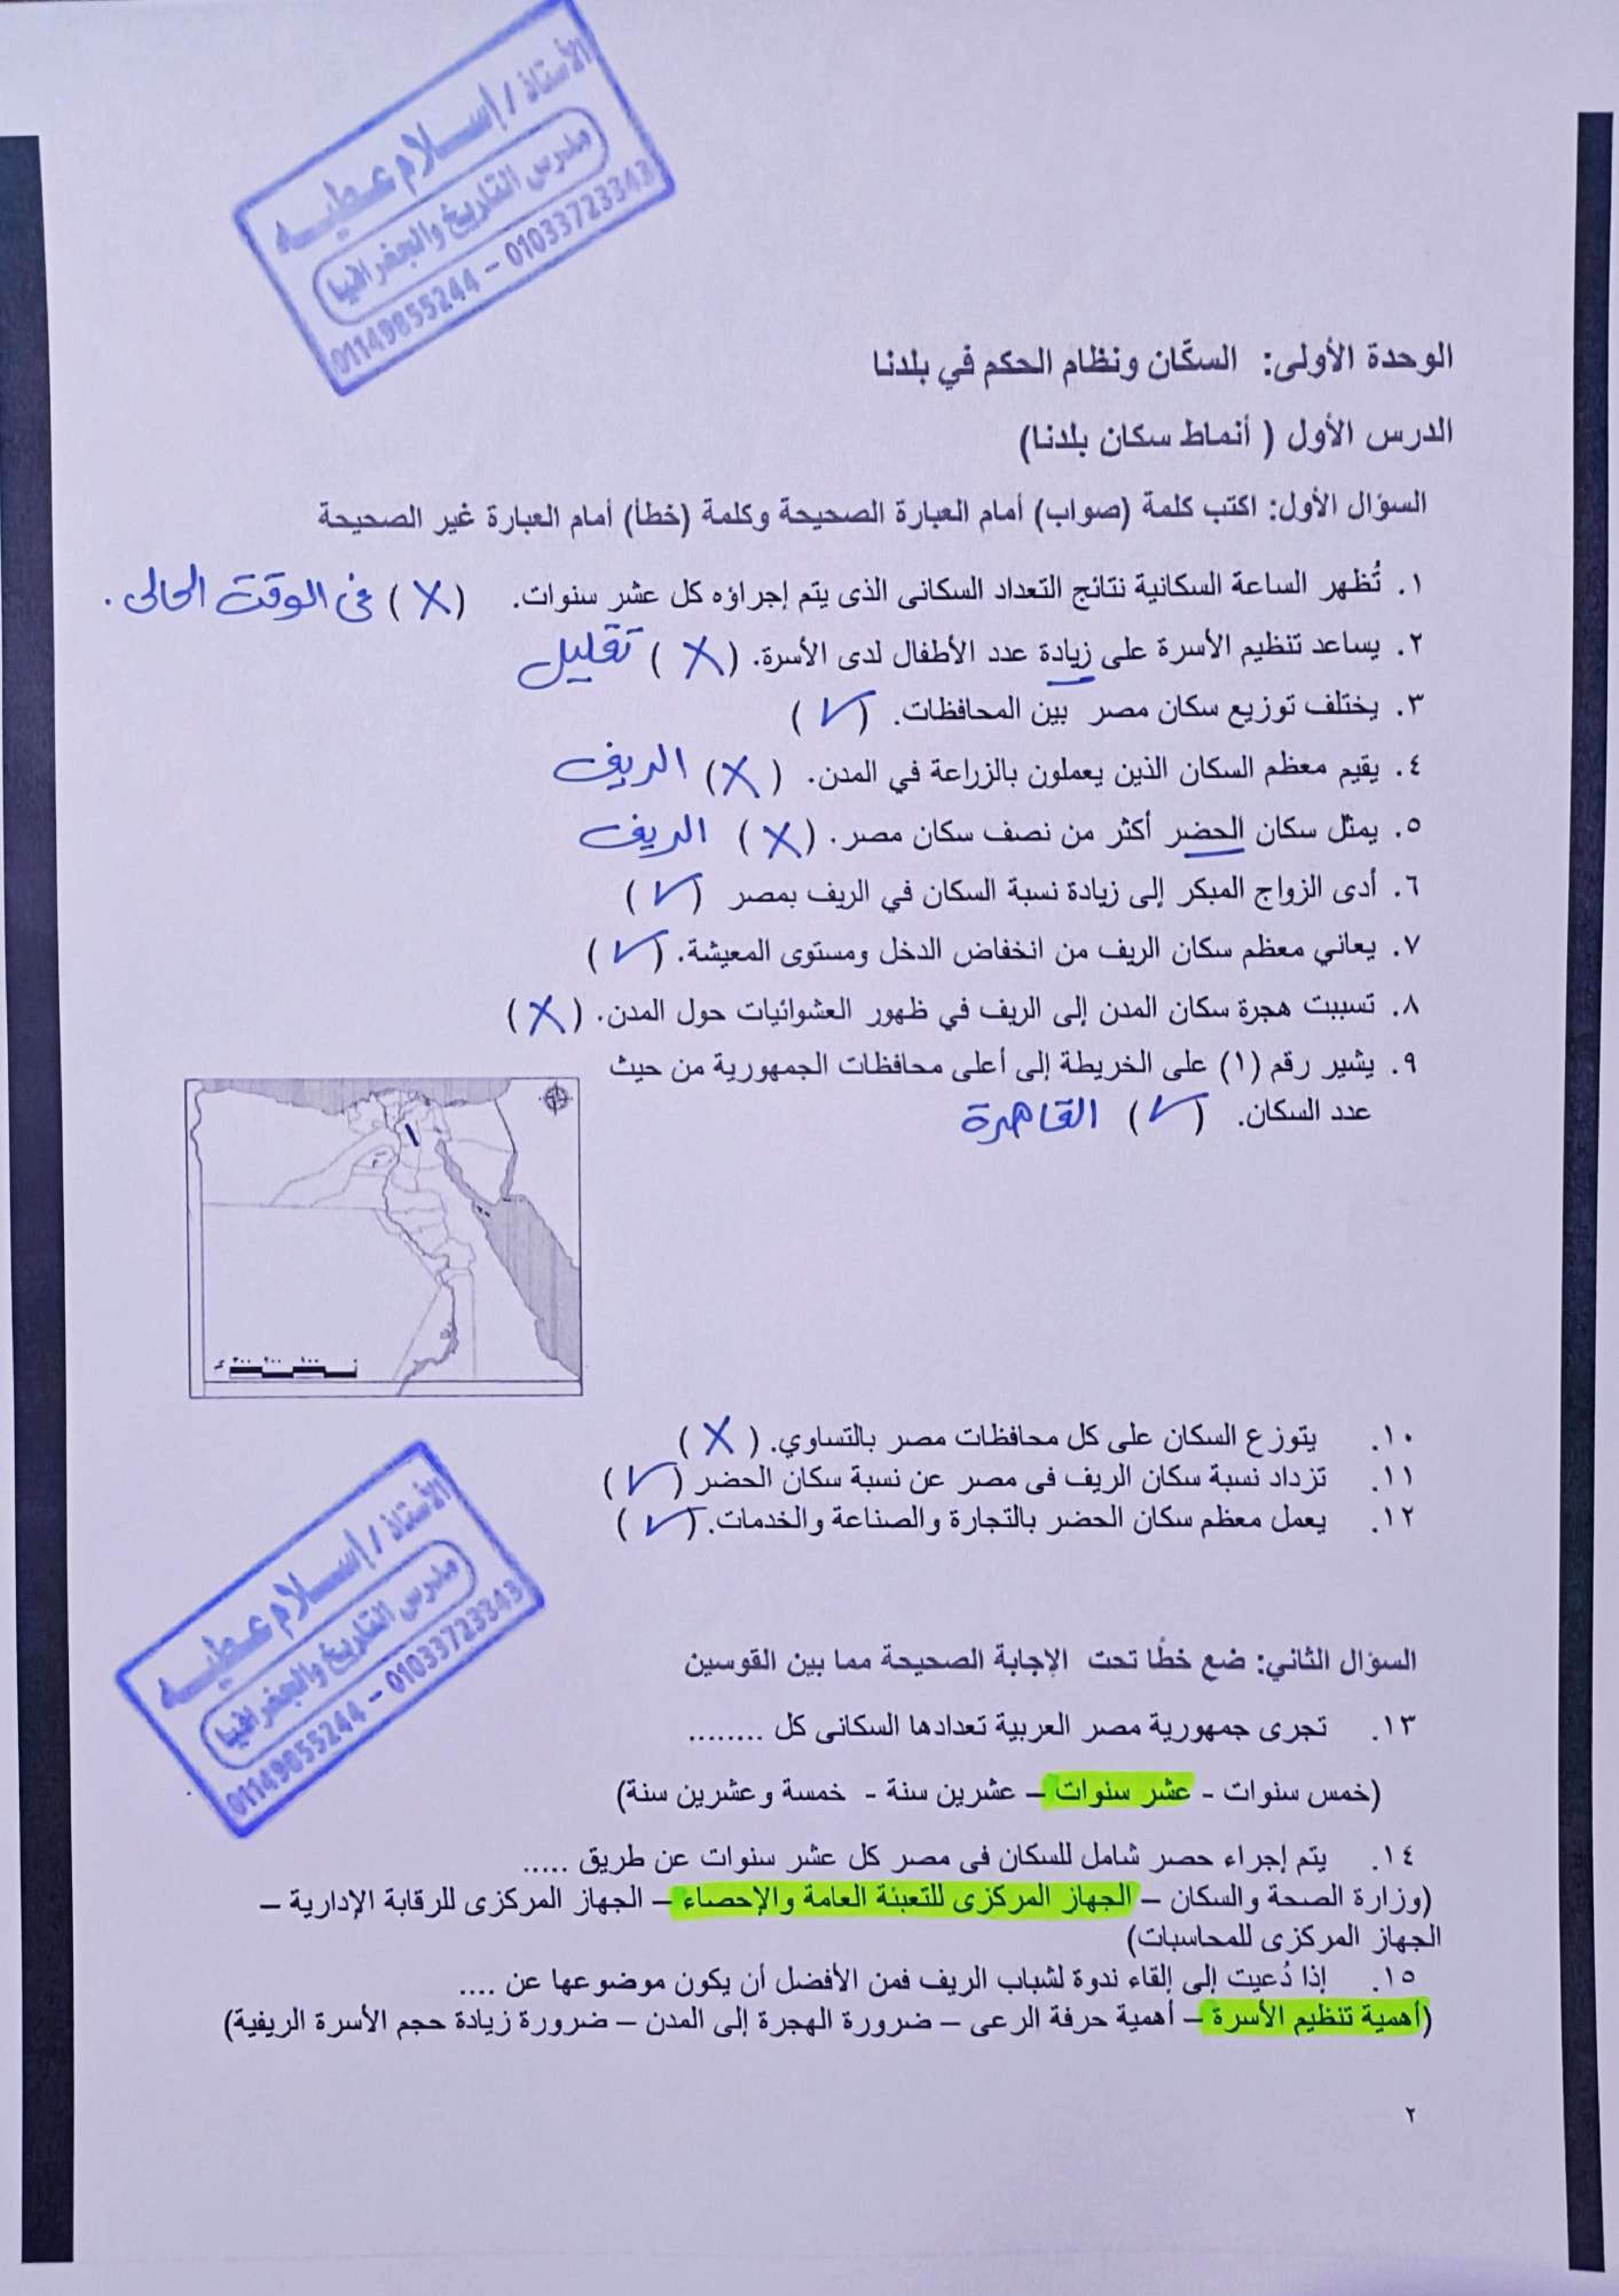 الأستاذ / إسلام عطيه
مدرس التاريخ والجغرافيا
01149855244 - 01033723343
الوحدة الأولى: السكّان ونظام الحكم في بلدنا
الدرس الأول ( أنماط سكان بلدنا)
السؤال الأول: اكتب كلمة (صواب) أمام العبارة الصحيحة وكلمة (خطأ) أمام العبارة غير الصحيحة
١. تُظهر الساعة السكانية نتائج التعداد السكانى الذى يتم إجراؤه كل عشر سنوات. (X) فى الوقت الحالى.
٢. يساعد تنظيم الأسرة على زيادة عدد الأطفال لدى الأسرة. (X) تقليل
٣. يختلف توزيع سكان مصر بين المحافظات. (✓)
٤. يقيم معظم السكان الذين يعملون بالزراعة في المدن. (X) الريف
٥. يمثل سكان الحضر أكثر من نصف سكان مصر. (X) الريف
٦. أدى الزواج المبكر إلى زيادة نسبة السكان في الريف بمصر (✓)
٧. يعاني معظم سكان الريف من انخفاض الدخل ومستوى المعيشة. (✓)
٨. تسببت هجرة سكان المدن إلى الريف في ظهور العشوائيات حول المدن. (X)
٩. يشير رقم (١) على الخريطة إلى أعلى محافظات الجمهورية من حيث
عدد السكان. (✓) القاهرة
١
٢
٣٠٠ ٢٠٠ ١٠٠ ٠
١٠. يتوزع السكان على كل محافظات مصر بالتساوي. (X)
١١. تزداد نسبة سكان الريف فى مصر عن نسبة سكان الحضر (✓)
١٢. يعمل معظم سكان الحضر بالتجارة والصناعة والخدمات. (✓)
الأستاذ / إسلام عطيه
مدرس التاريخ والجغرافيا
01149855244 - 01033723343
السؤال الثاني: ضع خطًا تحت الإجابة الصحيحة مما بين القوسين
١٣. تجرى جمهورية مصر العربية تعدادها السكانى كل ........
(خمس سنوات - عشر سنوات – عشرين سنة - خمسة وعشرين سنة)
١٤. يتم إجراء حصر شامل للسكان فى مصر كل عشر سنوات عن طريق .....
(وزارة الصحة والسكان – الجهاز المركزى للتعبئة العامة والإحصاء – الجهاز المركزى للرقابة الإدارية –
الجهاز المركزى للمحاسبات)
١٥. إذا دُعيت إلى إلقاء ندوة لشباب الريف فمن الأفضل أن يكون موضوعها عن ....
(أهمية تنظيم الأسرة – أهمية حرفة الرعى – ضرورة الهجرة إلى المدن – ضرورة زيادة حجم الأسرة الريفية)
٢